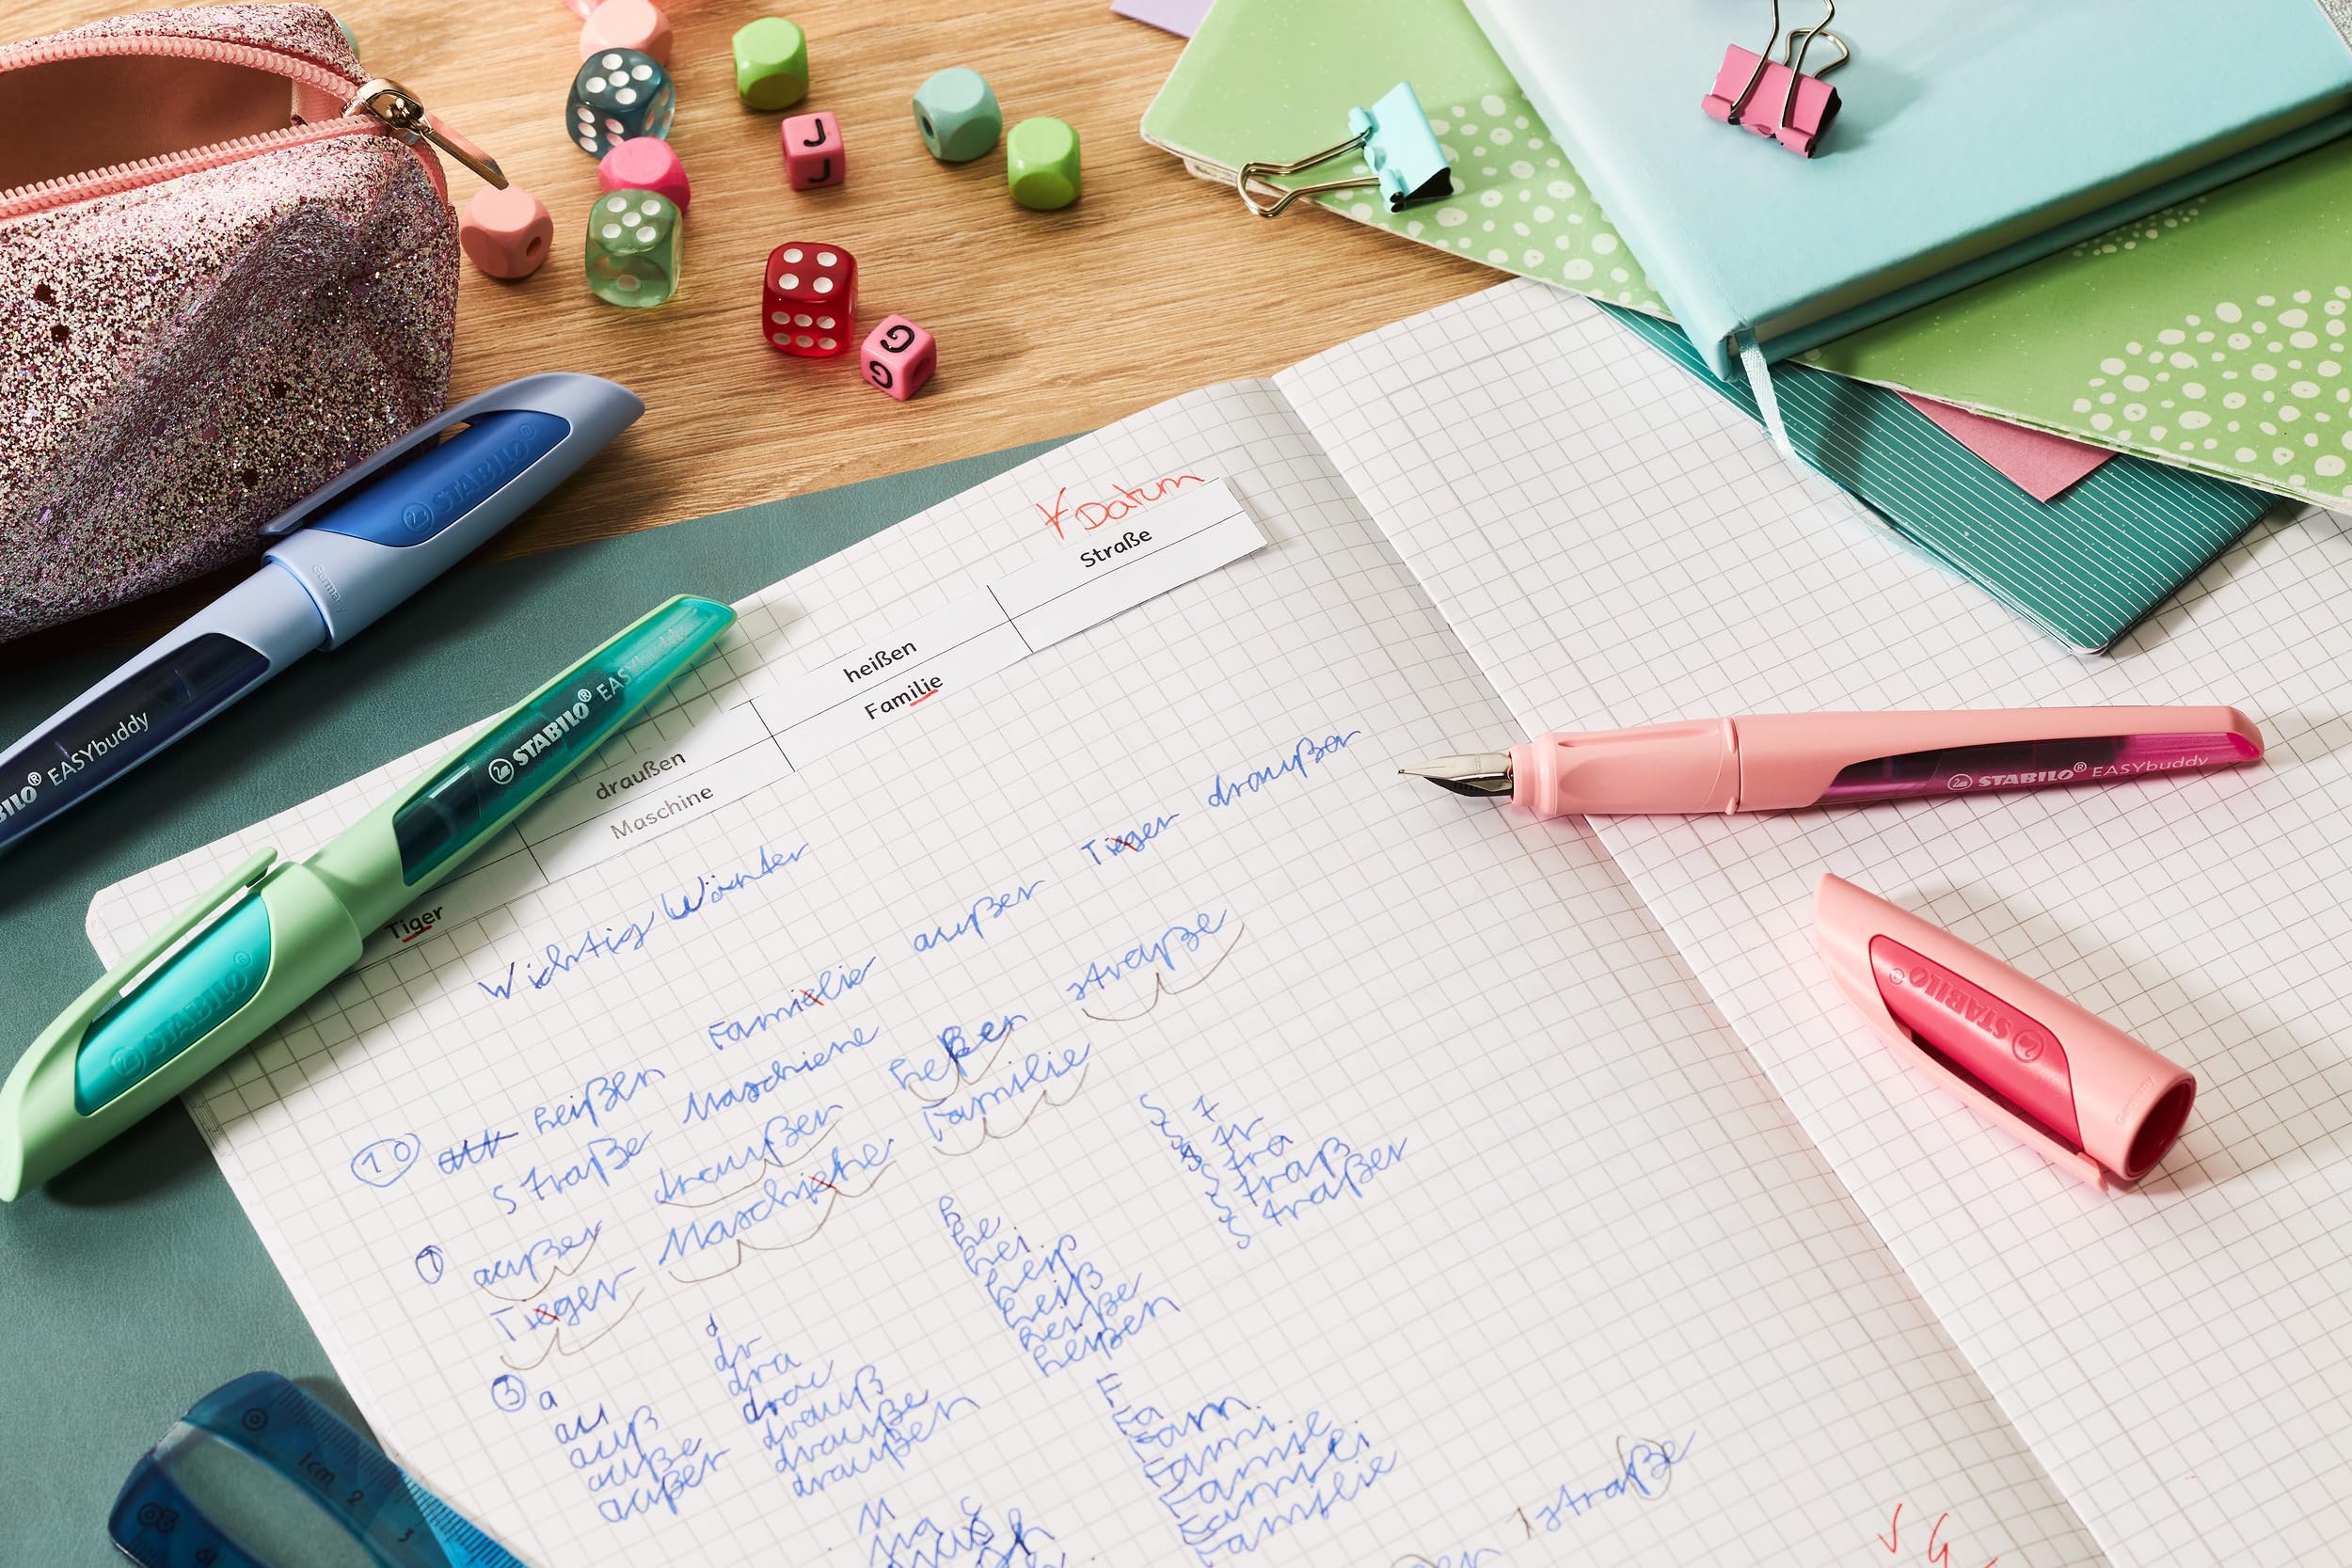 J
J
G
G
STABILO®
Germany
BILO® EASYbuddy
STABILO® EASYbuddy
STABILO®
Datum
Straße
heißen
Familie
draußen
Maschine
Tiger
STABILO® EASYbuddy
STABILO®
Germany
Wichtig Wörter
Familie außer Tieger draußen
10 heißen Maschiene heßen straße
Straße draußen Familie
1 außer Maschiene
Tieger
3 a
au
auß
auße
außer
d
dr
dra
drau
drauß
drauße
draußen
he
hei
heiß
heiße
heißen
S
St
Str
Stra
Straß
Straßer
F
Fa
Fam
Fami
Familie
M
Ma
straße
1cm 2 3
G